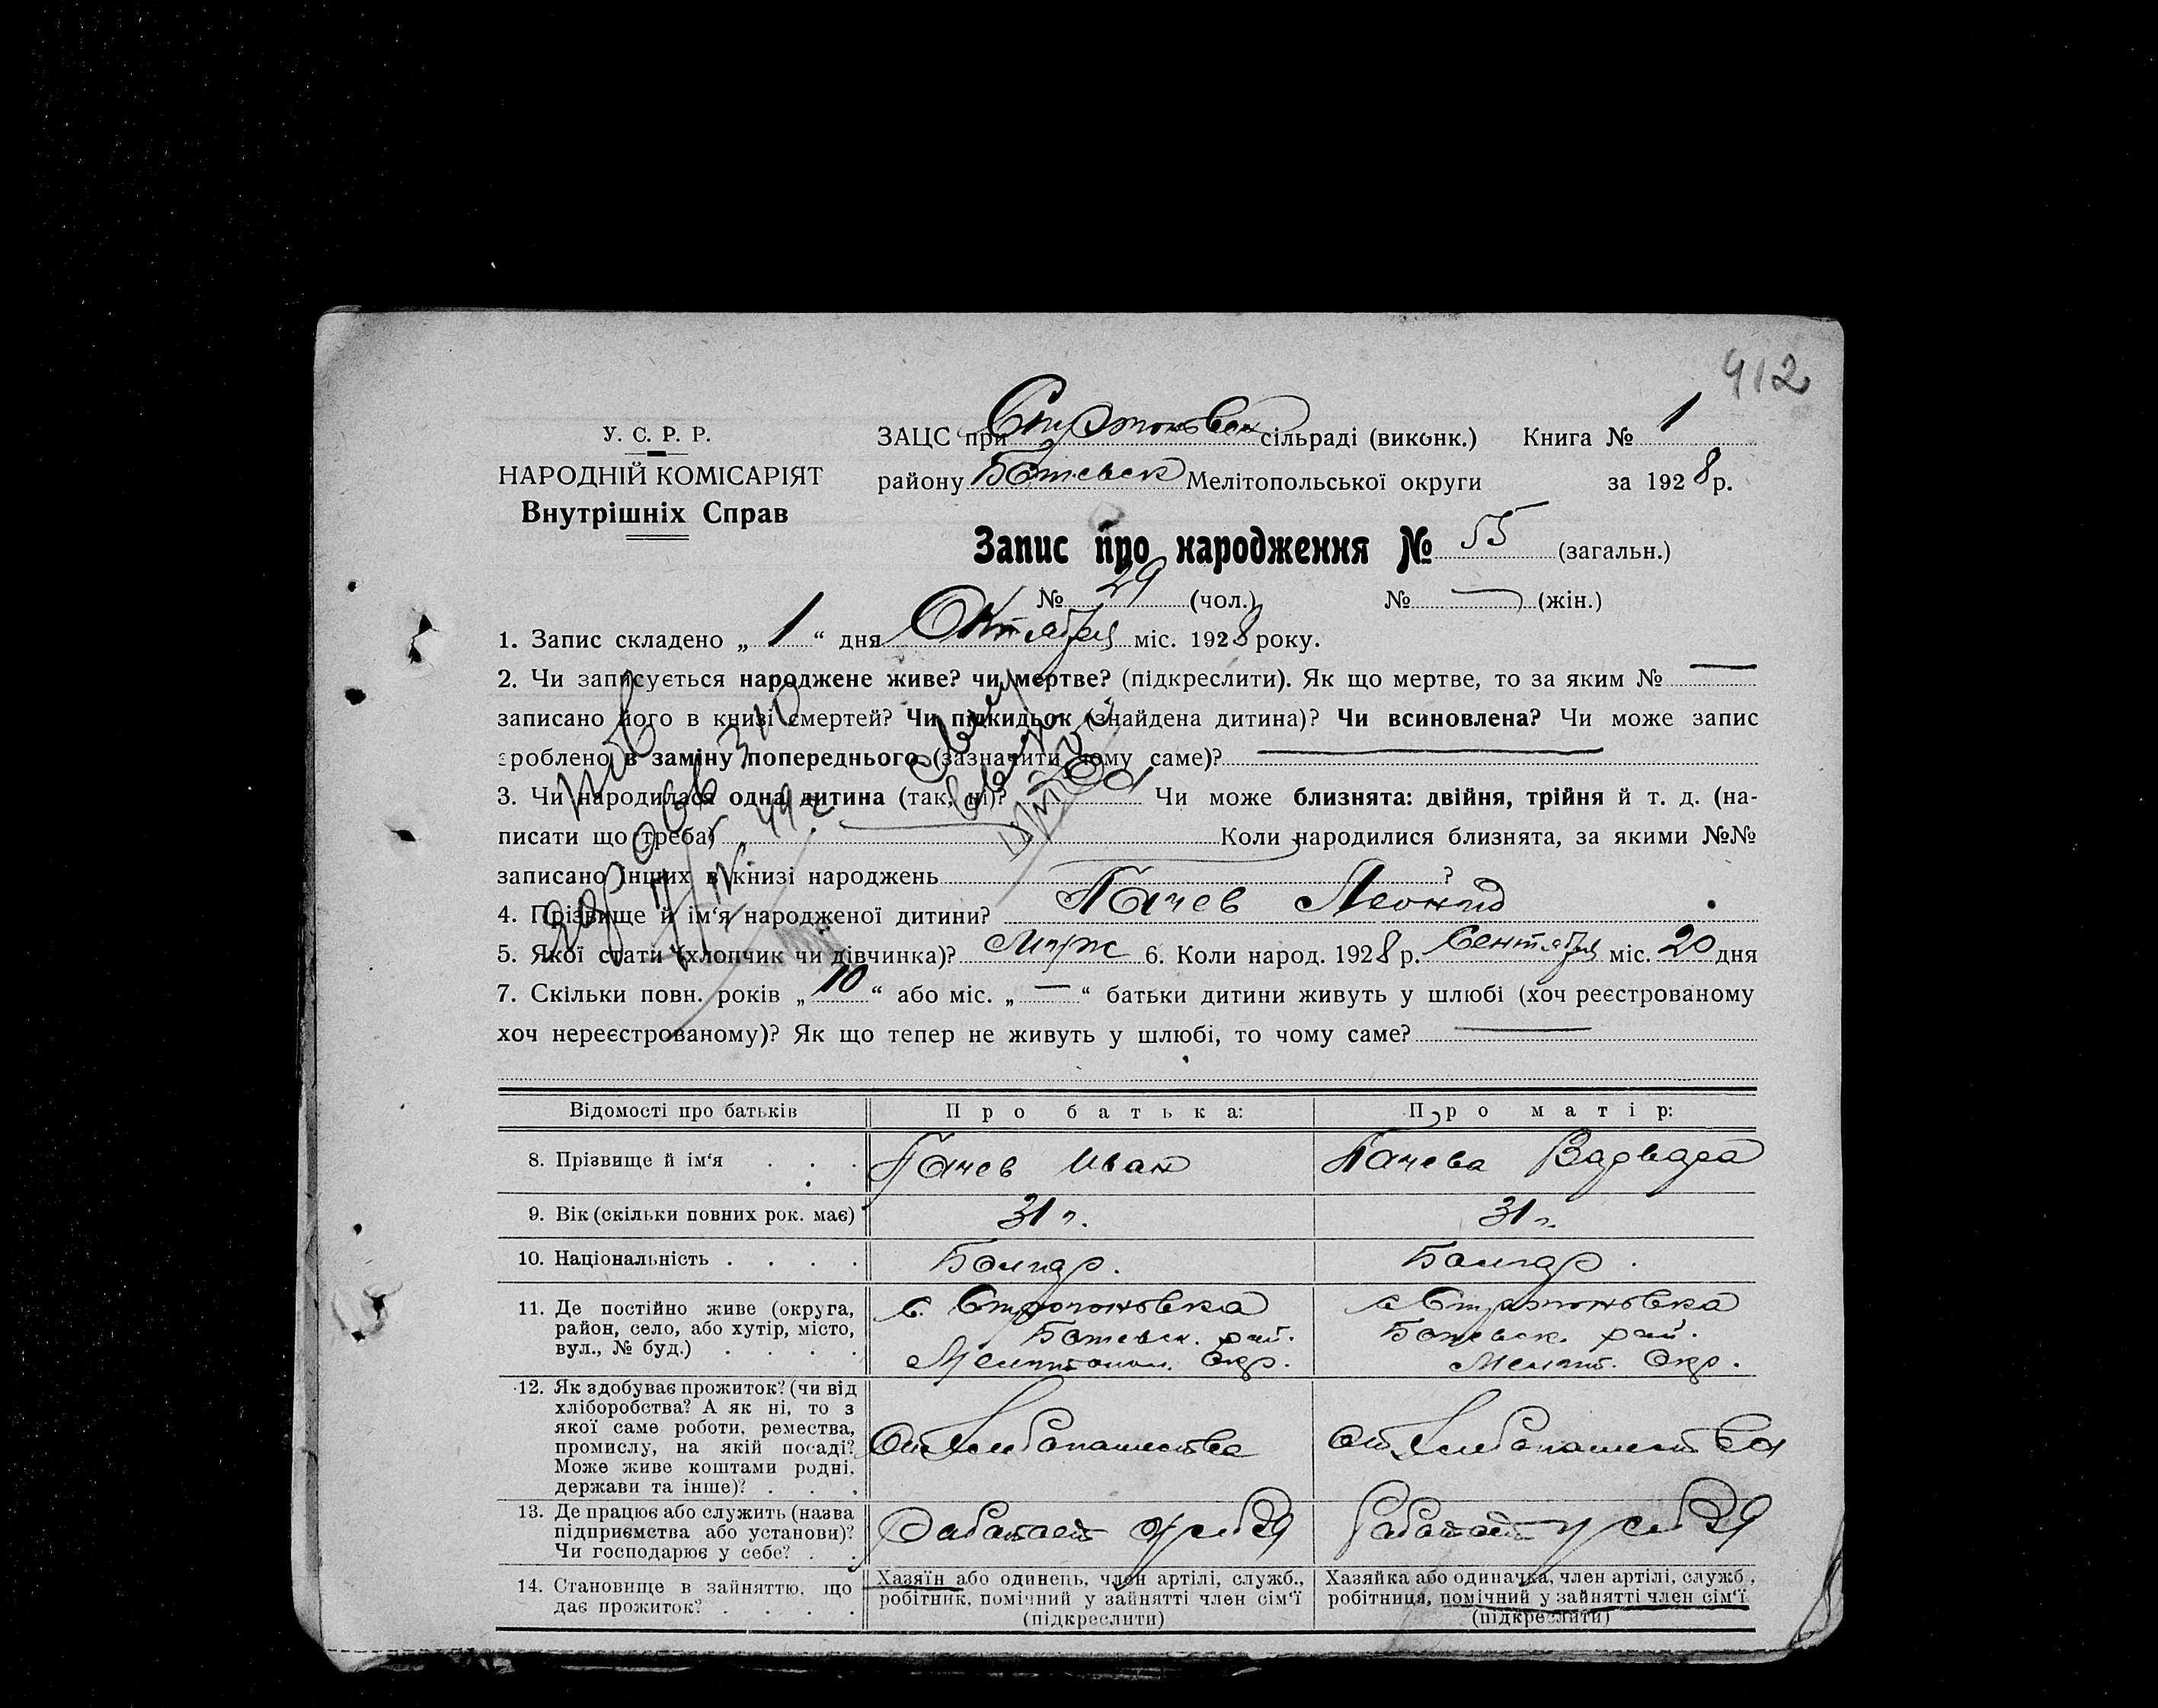 412
У. С. Р. Р.
НАРОДНІЙ КОМІСАРІЯТ
Внутрішніх Справ
ЗАЦС при сільраді (виконк.) Книга № 1
району Ботевск Мелітопольської округи за 1928 р.
Запис про народження № 55 (загальн.)
№ 29 (чол.) № — (жін.)
1. Запис складено „ 1 “ дня Октября міс. 1928 року.
2. Чи записується народжене живе? чи мертве? (підкреслити). Як що мертве, то за яким № —
записано його в книзі смертей? Чи підкидьок (знайдена дитина)? Чи всиновлена? Чи може запис
зроблено в заміну попереднього (зазначити чому саме)?
3. Чи народилася одна дитина (так, ні)? Чи може близнята: двійня, трійня й т. д. (на-
писати що треба) Коли народилися близнята, за якими №№
записано інших в книзі народжень ?
4. Прізвище й ім‘я народженої дитини? Пачев Леонид
5. Якої статі (хлопчик чи дівчинка)? Муж 6. Коли народ. 1928 р. Сентября міс. 20 дня
7. Скільки повн. років „ 10 “ або міс. „ — “ батьки дитини живуть у шлюбі (хоч реєстрованому
хоч нереєстрованому)? Як що тепер не живуть у шлюбі, то чому саме? —
Відомості про батьків Про батька: Про матір:
8. Прізвище й ім‘я . . . Пачев Иван Пачева Варвара
9. Вік (скільки повних рок. має) 31 г. 31 г.
10. Національність . . . . Болгар. Болгар.
11. Де постійно живе (округа, с. Строгоновка с Строгоновка
район, село, або хутір, місто, Ботевск. рай. Ботевск. рай.
вул., № буд.) . . . . Мелитопол. Окр. Мелит. Окр.
12. Як здобуває прожиток? (чи від
хліборобства? А як ні, то з
якої саме роботи, ремества,
промислу, на якій посаді? От хлебопашества От хлебопашества
Може живе коштами родні,
держави та інше)? . . .
13. Де працює або служить (назва
підприємства або установи)? Работает у себя Работает у себя
Чи господарює у себе? . .
14. Становище в зайняттю, що Хазяїн або одинець, член артілі, служб., Хазяйка або одиначка, член артілі, служб.,
дає прожиток? . . . . робітник, помічний у зайнятті член сім‘ї робітниця, помічний у зайнятті член сім‘ї
(підкреслити) (підкреслити)